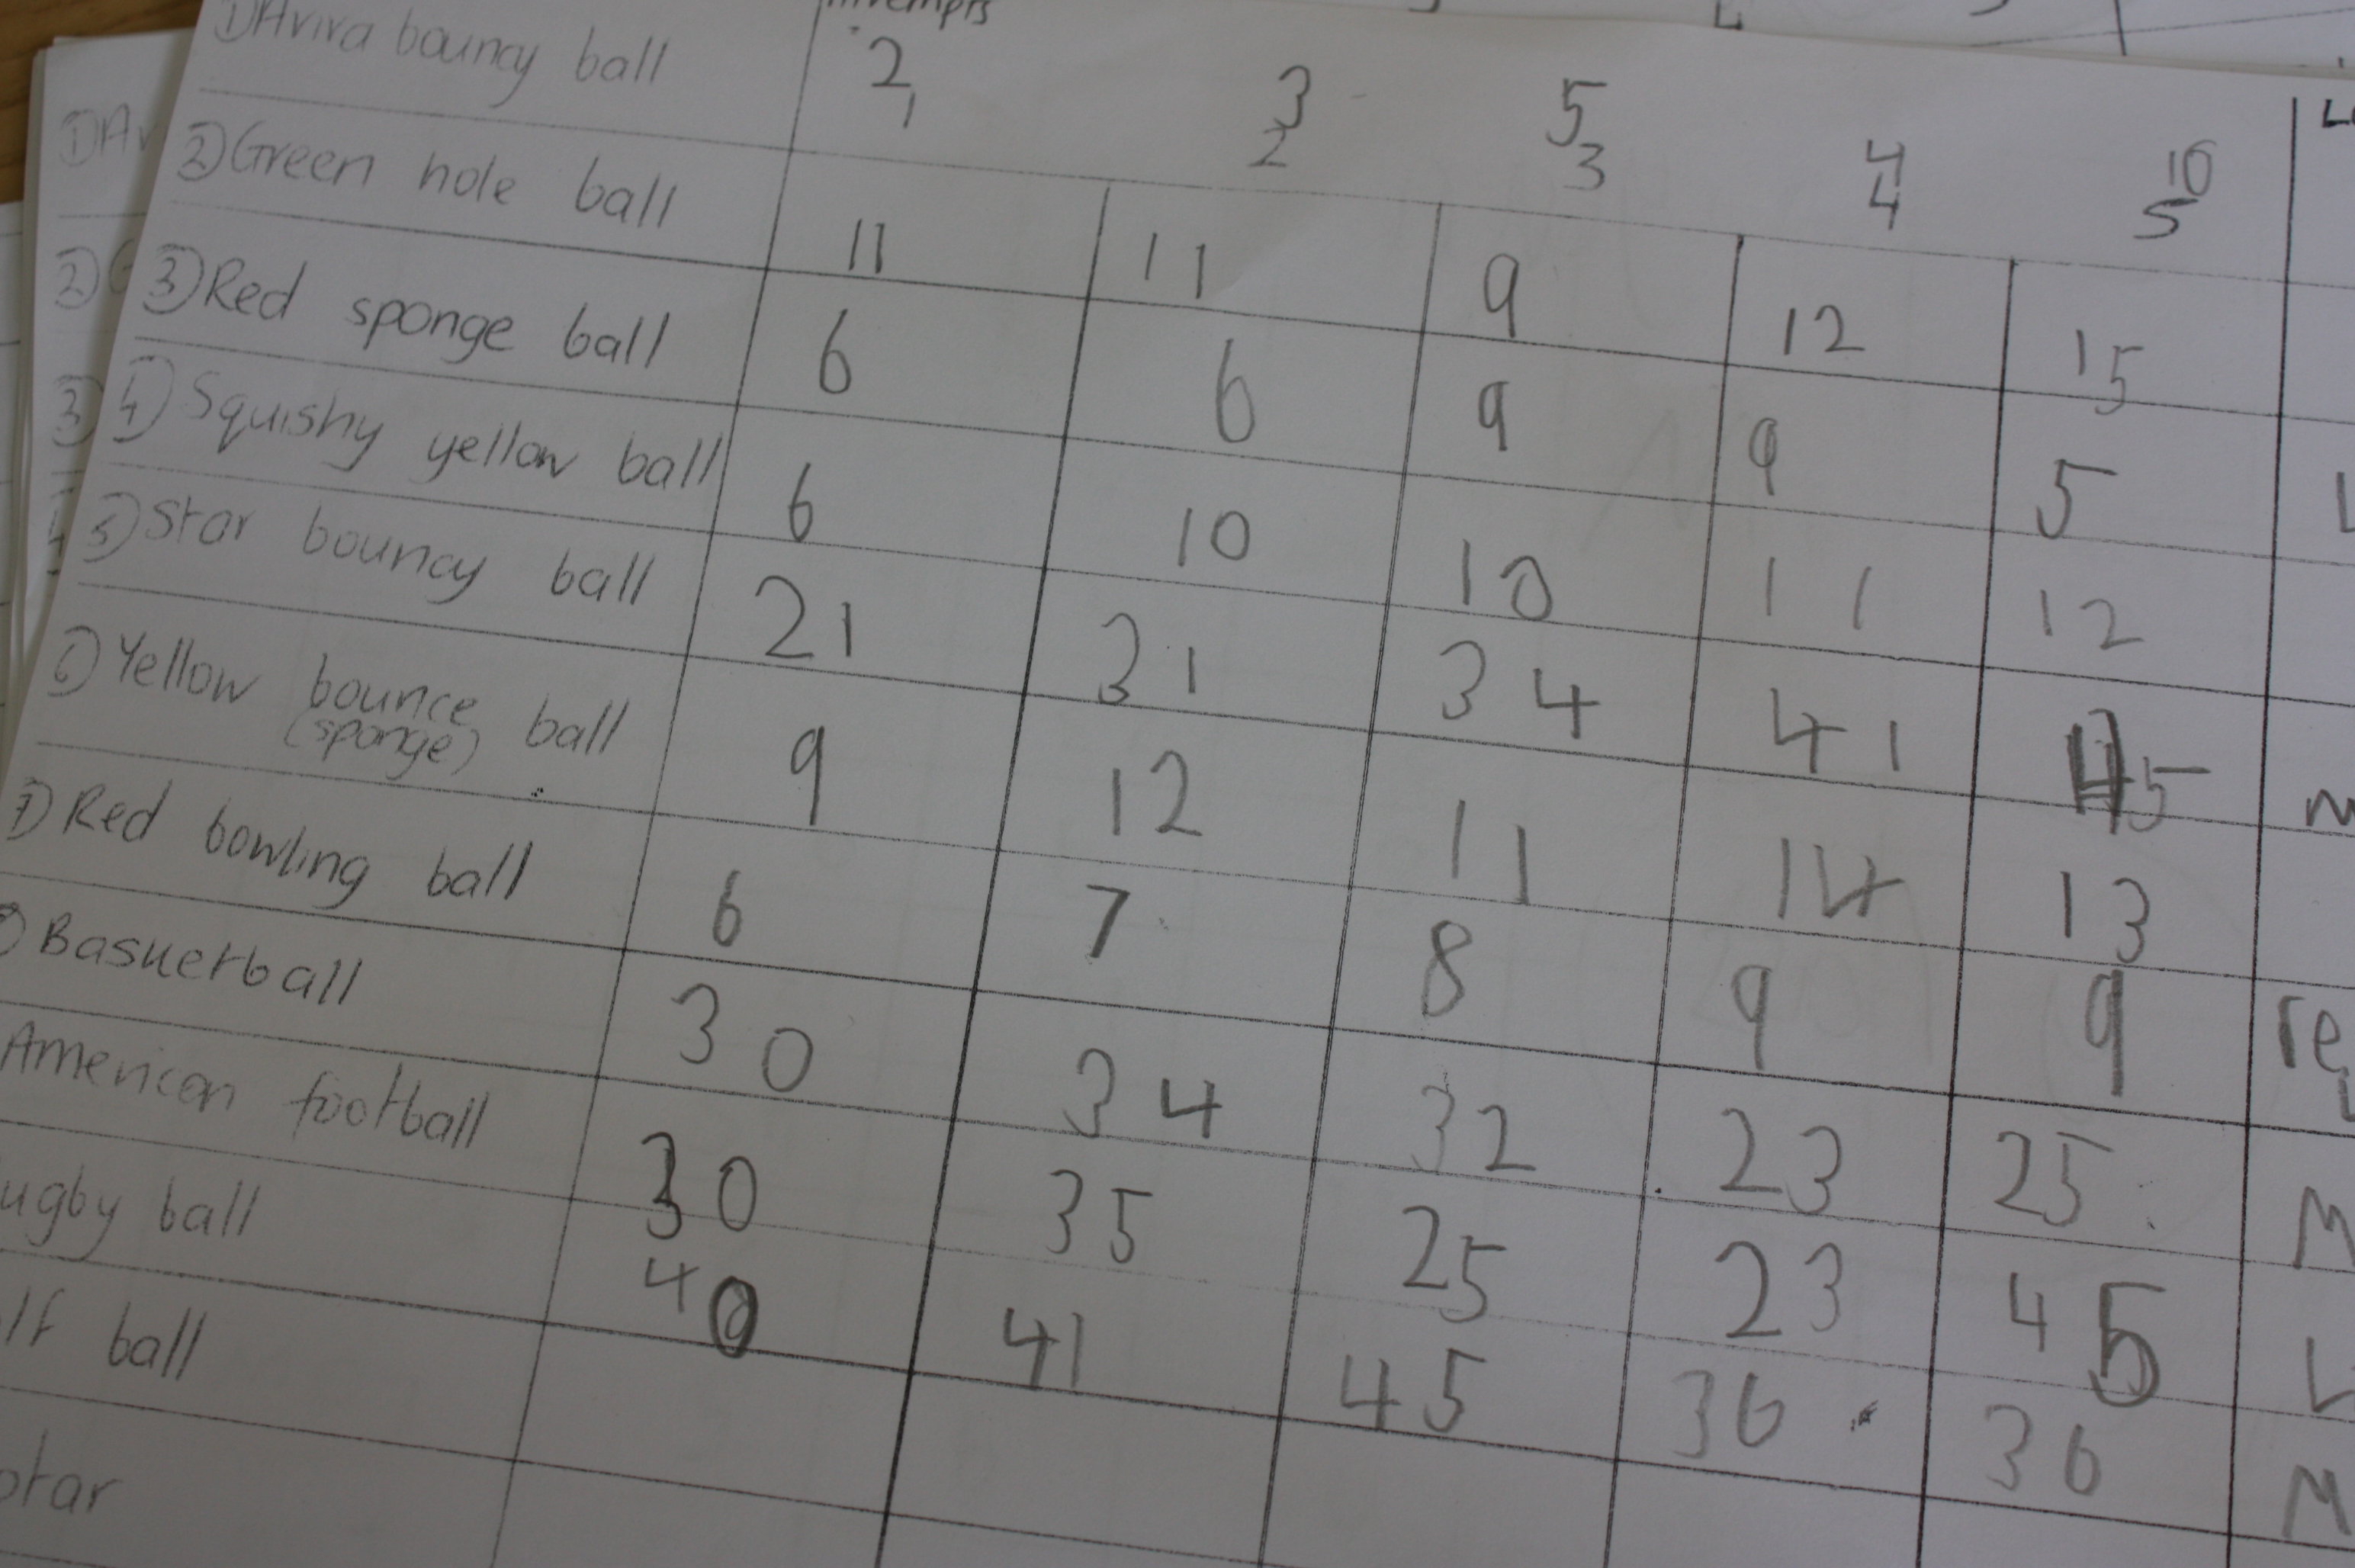 ① Aviva bouncy ball 2 3 5 4 10
1 2 3 4 5
② Green hole ball 11 11 9 12 15
③ Red sponge ball 6 6 9 9 5
④ Squishy yellow ball 6 10 10 11 12
⑤ Star bouncy ball 21 31 34 41 45
⑥ Yellow bounce (sponge) ball 9 12 11 14 13
⑦ Red bowling ball 6 7 8 9 9
Basketball 30 34 32 23 25
American football 30 35 25 23 45
ugby ball 40 41 45 36 36
lf ball